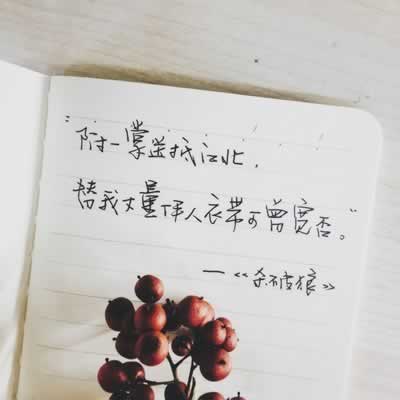 "附一掌送抵江北，
替我丈量伊人衣带可曾宽否。"
——《杀破狼》